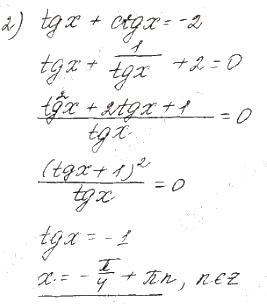 2) tgx + ctgx = -2
tgx + 1/tgx + 2 = 0
(tg²x + 2tgx + 1)/tgx = 0
(tgx + 1)²/tgx = 0
tgx = -1
x = -π/4 + πn, n∈z